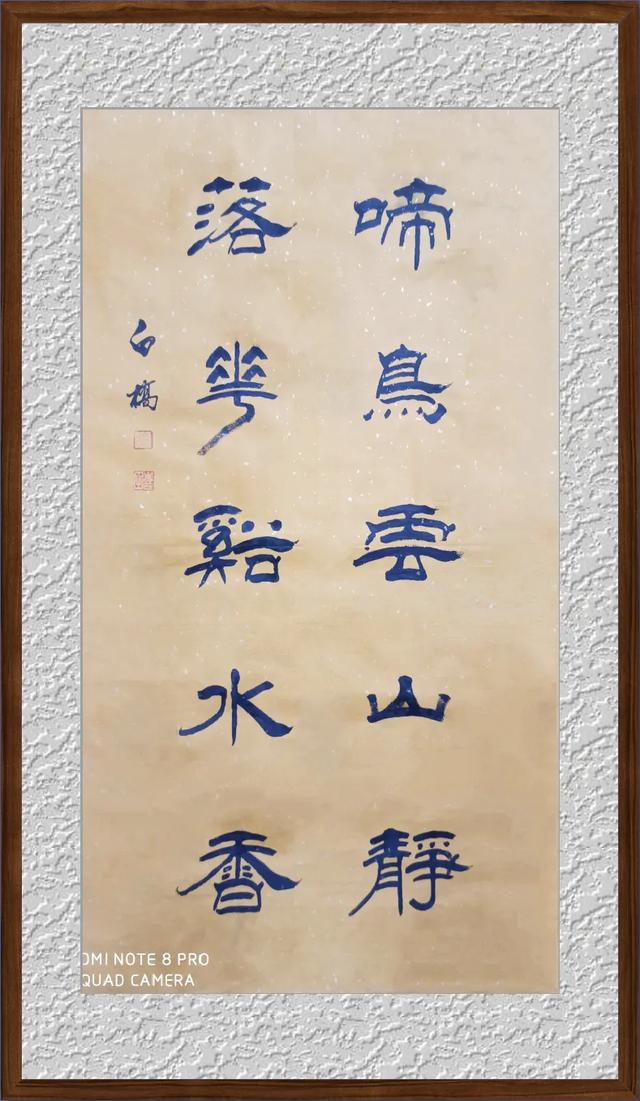 啼鳥雲山靜
落花谿水香
白橋
OMI NOTE 8 PRO
QUAD CAMERA